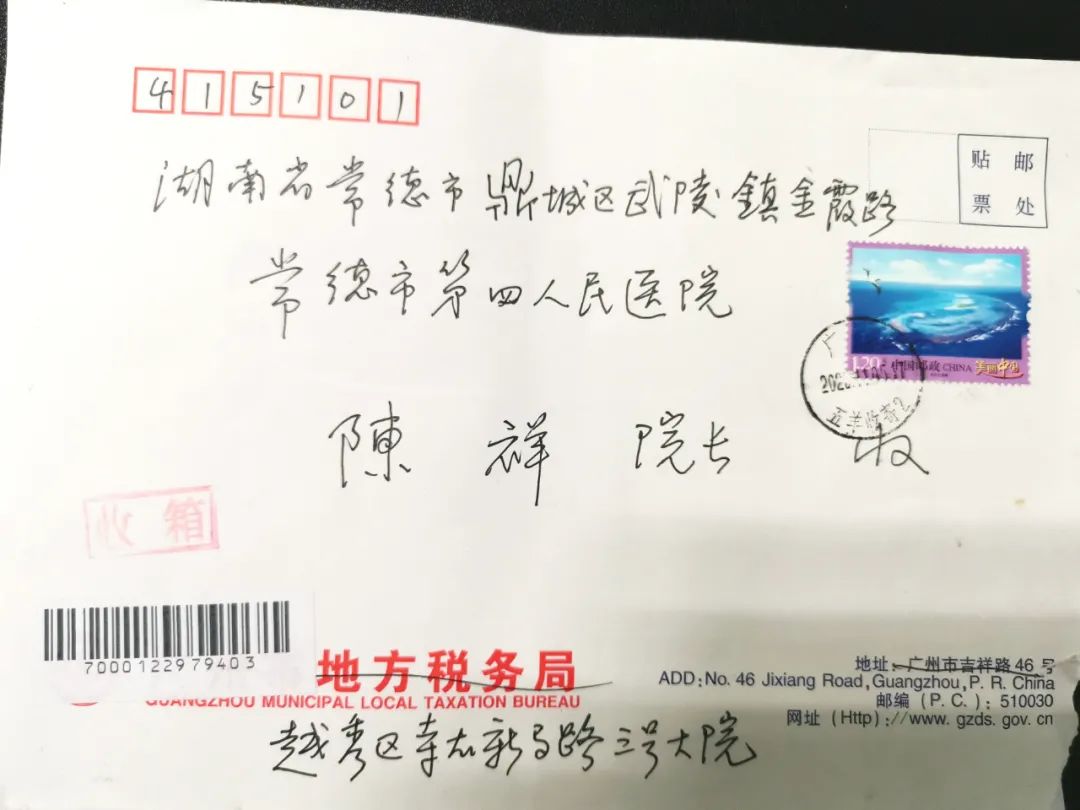 415101
贴 邮
票 处
湖南省常德市鼎城区武陵鎮金霞路
常德市第四人民医院
1.20 中国邮政 CHINA 美丽中国
陳 祥 院长 收
箱
7000122979403
地方税务局
GUANGZHOU MUNICIPAL LOCAL TAXATION BUREAU
地址:广州市吉祥路46号
ADD:No. 46 Jixiang Road,Guangzhou,P. R. China
邮编(P. C.):510030
网址(Http)://www. gzds. gov. cn
越秀区寺右新马路三号大院